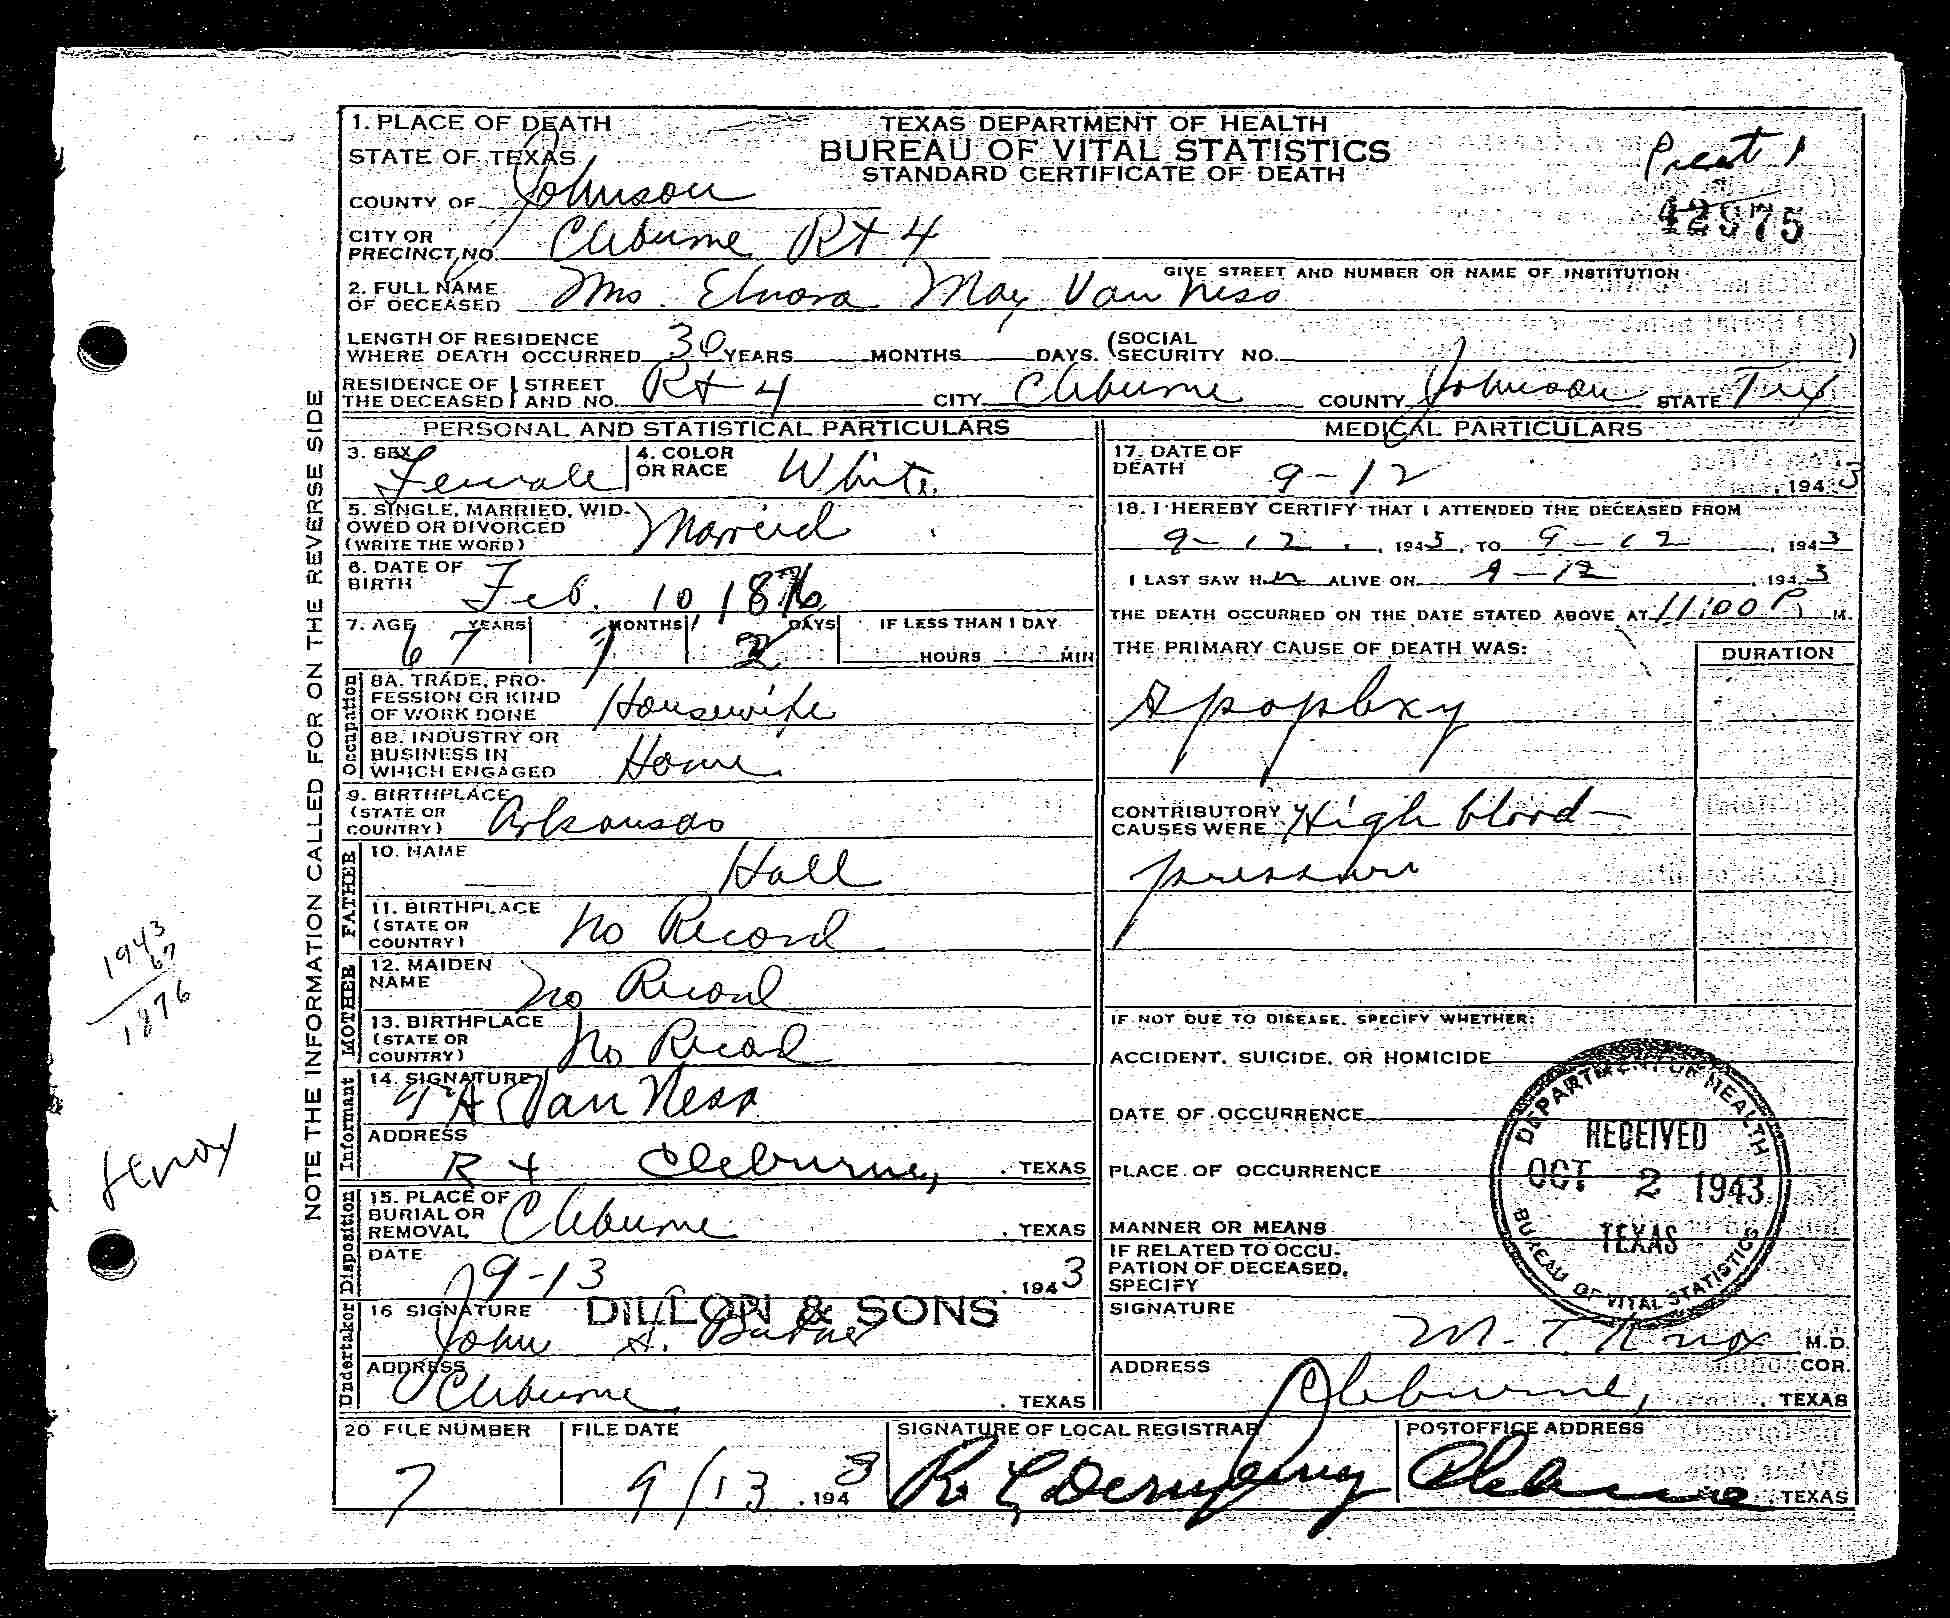 1. PLACE OF DEATH
STATE OF TEXAS
COUNTY OF Johnson
CITY OR PRECINCT NO. Cleburne Rt 4
TEXAS DEPARTMENT OF HEALTH
BUREAU OF VITAL STATISTICS
STANDARD CERTIFICATE OF DEATH
Precat 1
42975
GIVE STREET AND NUMBER OR NAME OF INSTITUTION
2. FULL NAME OF DECEASED Mrs. Elnora May Van Ness
LENGTH OF RESIDENCE WHERE DEATH OCCURRED 30 YEARS MONTHS DAYS. (SOCIAL SECURITY NO. )
RESIDENCE OF THE DECEASED STREET AND NO. Rt 4 CITY Cleburne COUNTY Johnson STATE Tex
PERSONAL AND STATISTICAL PARTICULARS
3. SEX Female 4. COLOR OR RACE White
5. SINGLE, MARRIED, WIDOWED OR DIVORCED (WRITE THE WORD) Married
6. DATE OF BIRTH Feb. 10, 1876
7. AGE YEARS 67 MONTHS 7 DAYS 2 IF LESS THAN 1 DAY HOURS MIN
Occupation
8A. TRADE, PROFESSION OR KIND OF WORK DONE Housewife
8B. INDUSTRY OR BUSINESS IN WHICH ENGAGED Home
9. BIRTHPLACE (STATE OR COUNTRY) Arkansas
FATHER
10. NAME Hall
11. BIRTHPLACE (STATE OR COUNTRY) No Record
MOTHER
12. MAIDEN NAME No Record
13. BIRTHPLACE (STATE OR COUNTRY) No Record
Informant
14. SIGNATURE Van Ness
ADDRESS Rt Cleburne, TEXAS
Disposition
15. PLACE OF BURIAL OR REMOVAL Cleburne TEXAS
DATE 9-13 1943
Undertaker
16 SIGNATURE DILLON & SONS
John A.
ADDRESS Cleburne TEXAS
MEDICAL PARTICULARS
17. DATE OF DEATH 9-12, 1943
18. I HEREBY CERTIFY THAT I ATTENDED THE DECEASED FROM
9-12, 1943, TO 9-12, 1943
I LAST SAW HER ALIVE ON 9-12, 1943
THE DEATH OCCURRED ON THE DATE STATED ABOVE AT 11:00 P M.
THE PRIMARY CAUSE OF DEATH WAS: DURATION
Apoplexy
CONTRIBUTORY CAUSES WERE High blood
pressure
IF NOT DUE TO DISEASE, SPECIFY WHETHER:
ACCIDENT, SUICIDE, OR HOMICIDE
DATE OF OCCURRENCE
PLACE OF OCCURRENCE
MANNER OR MEANS
IF RELATED TO OCCUPATION OF DECEASED, SPECIFY
DEPARTMENT OF HEALTH
RECEIVED
OCT 2 1943
TEXAS
BUREAU OF VITAL STATISTICS
SIGNATURE M. T. Knox M.D.
ADDRESS Cleburne, COR. TEXAS
20 FILE NUMBER 7
FILE DATE 9/13 1943
SIGNATURE OF LOCAL REGISTRAR R L
POSTOFFICE ADDRESS Cleburne, TEXAS
NOTE THE INFORMATION CALLED FOR ON THE REVERSE SIDE
1943
67
1876